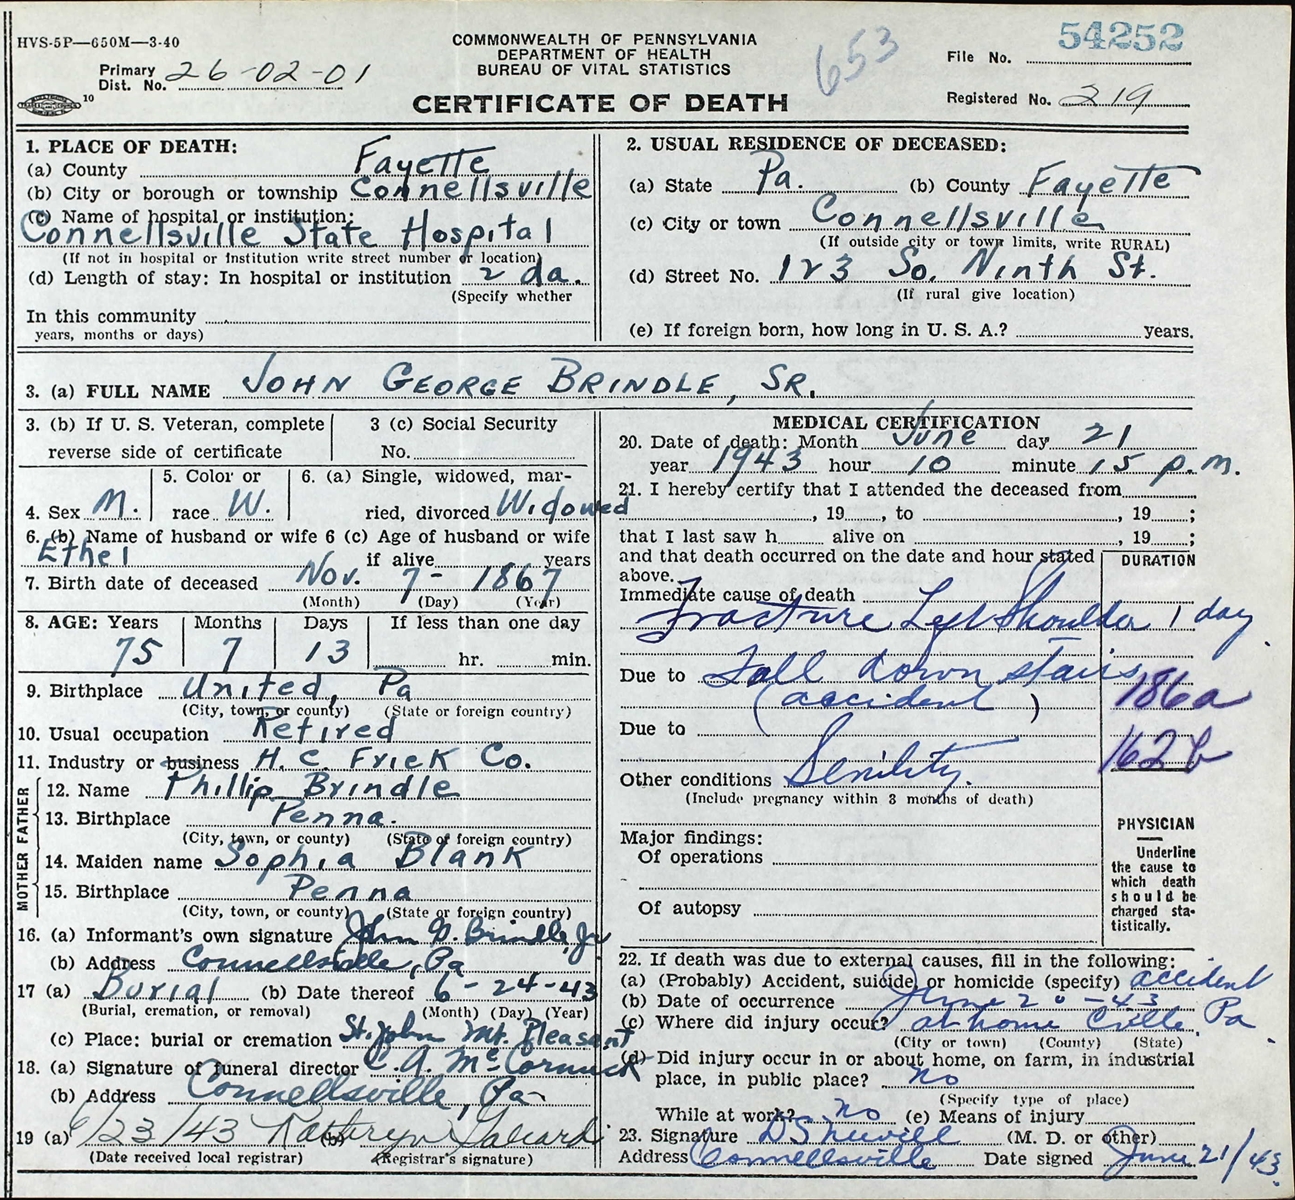 HVS-5P—650M—3-40
COMMONWEALTH OF PENNSYLVANIA
DEPARTMENT OF HEALTH
BUREAU OF VITAL STATISTICS
CERTIFICATE OF DEATH
653
File No. 54252
Primary Dist. No. 26-02-01
10
Registered No. 219
1. PLACE OF DEATH:
(a) County Fayette
(b) City or borough or township Connellsville
(c) Name of hospital or institution:
Connellsville State Hospital
(If not in hospital or institution write street number or location)
(d) Length of stay: In hospital or institution 2 da.
(Specify whether
In this community
years, months or days)
2. USUAL RESIDENCE OF DECEASED:
(a) State Pa. (b) County Fayette
(c) City or town Connellsville
(If outside city or town limits, write RURAL)
(d) Street No. 123 So. Ninth St.
(If rural give location)
(e) If foreign born, how long in U. S. A.? years.
3. (a) FULL NAME JOHN GEORGE BRINDLE, SR.
3. (b) If U. S. Veteran, complete reverse side of certificate
3 (c) Social Security No.
4. Sex M.
5. Color or race W.
6. (a) Single, widowed, married, divorced Widowed
6. (b) Name of husband or wife Ethel
6 (c) Age of husband or wife if alive years
7. Birth date of deceased Nov. 7- 1867
(Month) (Day) (Year)
8. AGE: Years Months Days If less than one day
75 7 13 hr. min.
9. Birthplace United, Pa
(City, town, or county) (State or foreign country)
10. Usual occupation Retired
11. Industry or business H. C. Frick Co.
FATHER
12. Name Phillip Brindle
13. Birthplace Penna.
(City, town, or county) (State or foreign country)
MOTHER
14. Maiden name Sophia Blank
15. Birthplace Penna
(City, town, or county) (State or foreign country)
16. (a) Informant's own signature John G. Brindle, Jr
(b) Address Connellsville, Pa
17 (a) Burial (b) Date thereof 6-24-43
(Burial, cremation, or removal) (Month) (Day) (Year)
(c) Place: burial or cremation St. John Mt. Pleasant
18. (a) Signature of funeral director C. A. McCormick
(b) Address Connellsville, Pa
19 (a) 6/23/43 (b) Kathryn
(Date received local registrar) (Registrar's signature)
MEDICAL CERTIFICATION
20. Date of death: Month June day 21
year 1943 hour 10 minute 15 p.m.
21. I hereby certify that I attended the deceased from
, 19 , to , 19 ;
that I last saw h alive on , 19 ;
and that death occurred on the date and hour stated above.
DURATION
Immediate cause of death
Fracture Left Shoulder 1 day
Due to Fall down stairs
(accident)
186a
Due to
162b
Other conditions Senility.
(Include pregnancy within 3 months of death)
Major findings:
Of operations
Of autopsy
PHYSICIAN
Underline the cause to which death should be charged statistically.
22. If death was due to external causes, fill in the following:
(a) (Probably) Accident, suicide, or homicide (specify) accident
(b) Date of occurrence June 20-43
(c) Where did injury occur? at home Cville, Pa
(City or town) (County) (State)
(d) Did injury occur in or about home, on farm, in industrial
place, in public place? no
(Specify type of place)
While at work? no (e) Means of injury
23. Signature (M. D. or other)
Address Connellsville Date signed June 21/43.